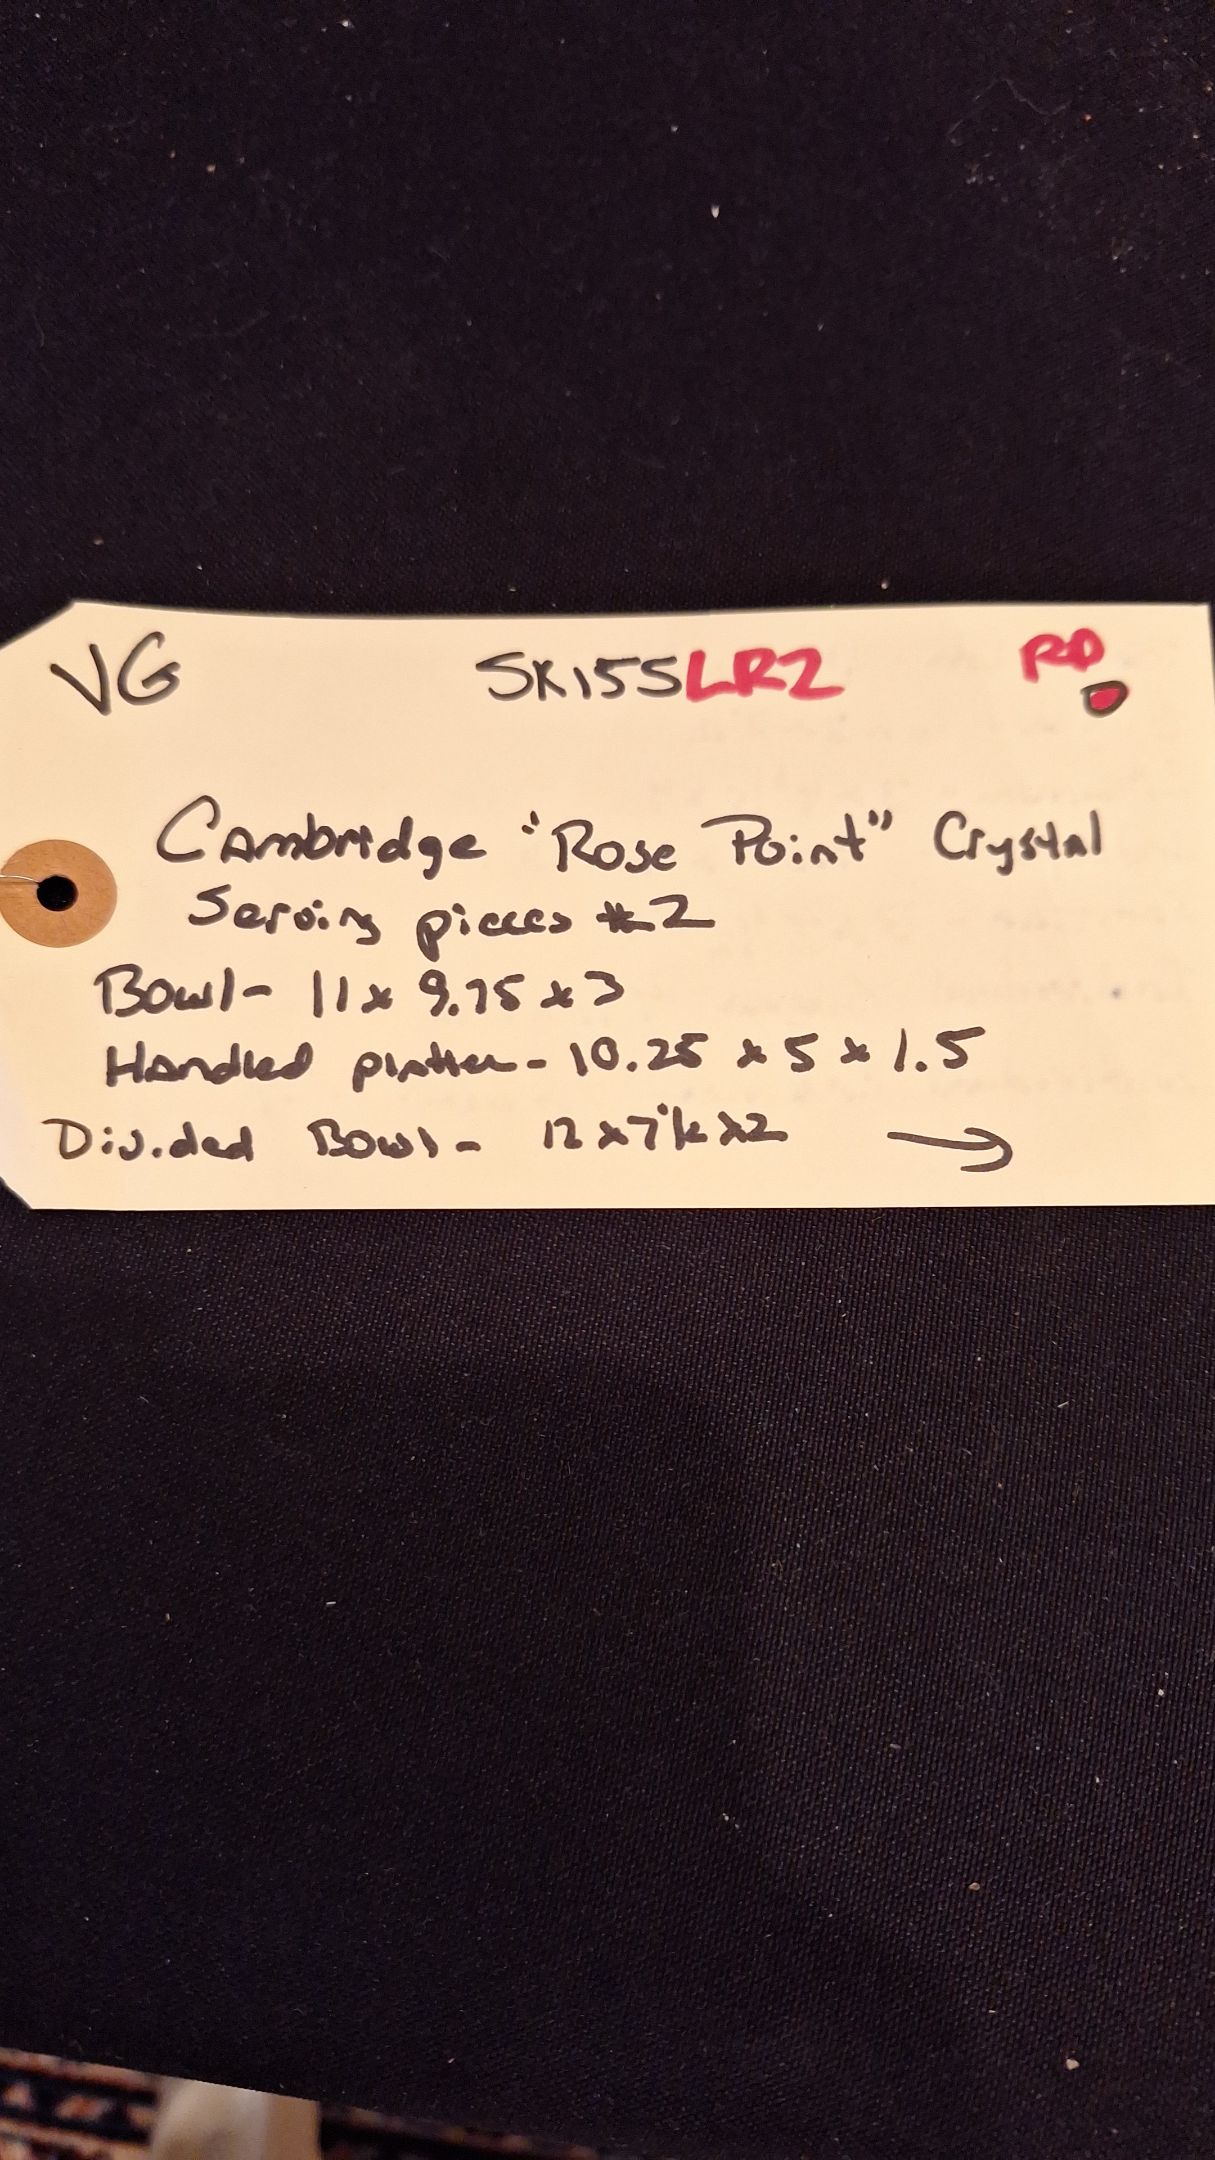 VG SK155LR2 RD
Cambridge "Rose Point" Crystal
Serving pieces #2
Bowl- 11 x 9.75 x 3
Handled platter- 10.25 x 5 x 1.5
Divided Bowl- 12 x 7 x 2 →